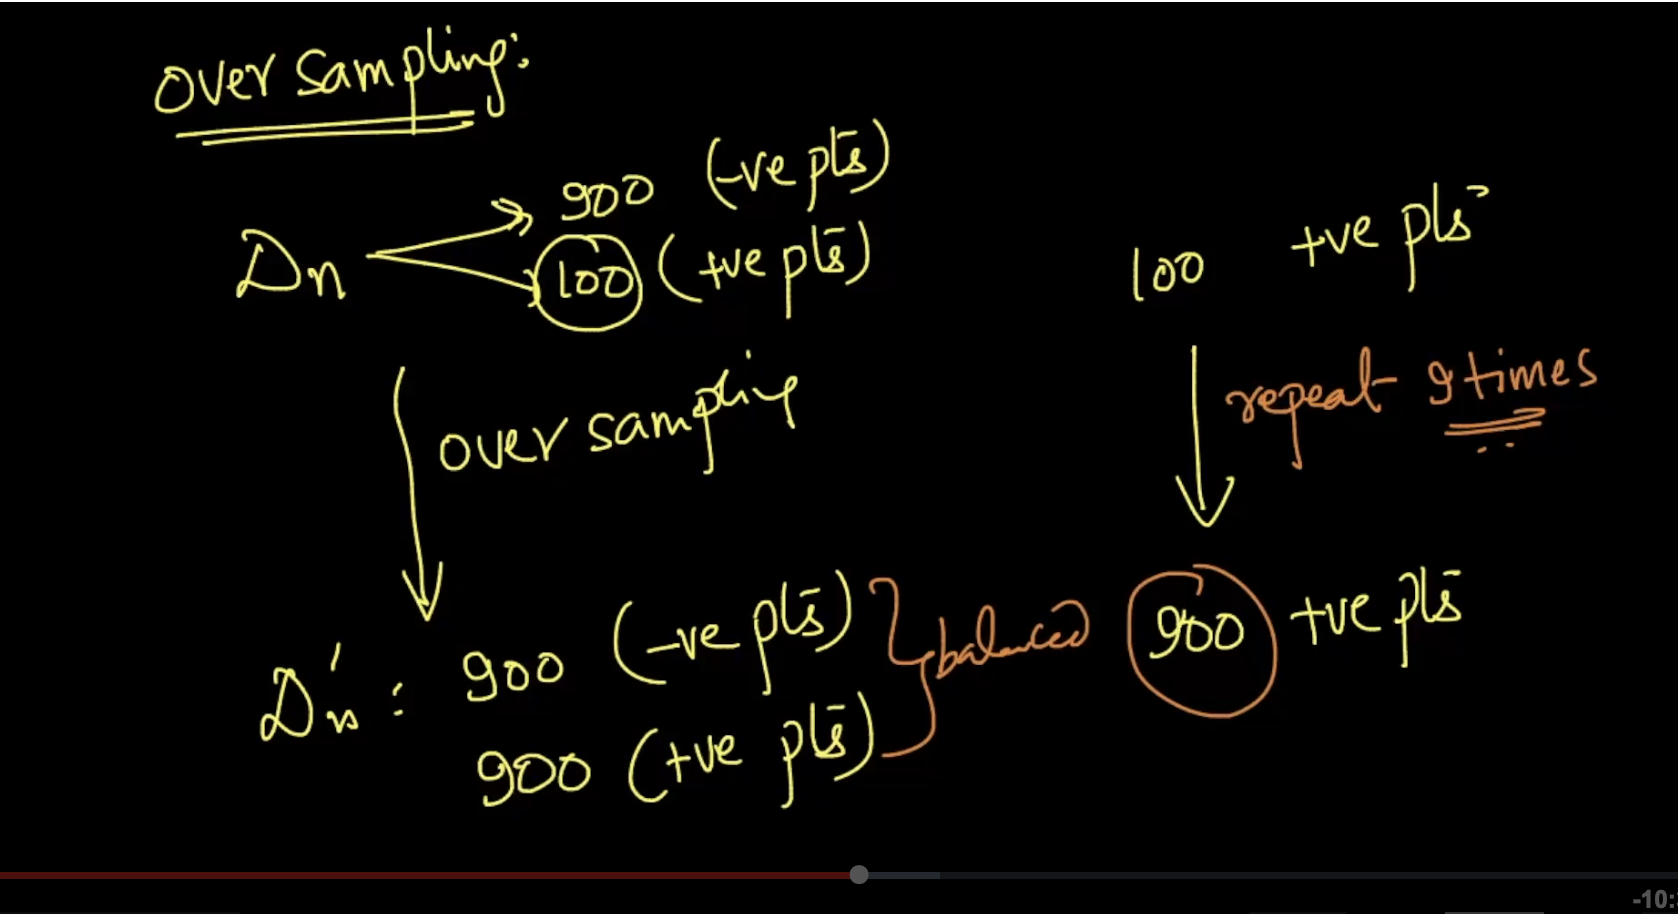 over sampling:
Dn
900 (-ve pts)
100 (+ve pts)
over sampling
Dn' : 900 (-ve pts)
900 (+ve pts)
balanced
100 +ve pts
repeat 9 times
900 +ve pts
-10: